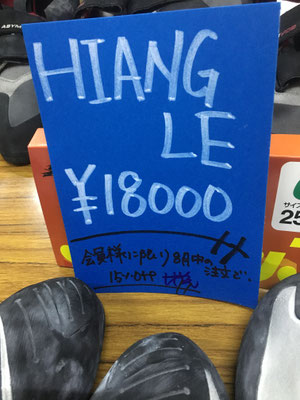 HIANG
LE
¥18000
会員様に限り8月中の注文で、
15%OFF
サイズ
25